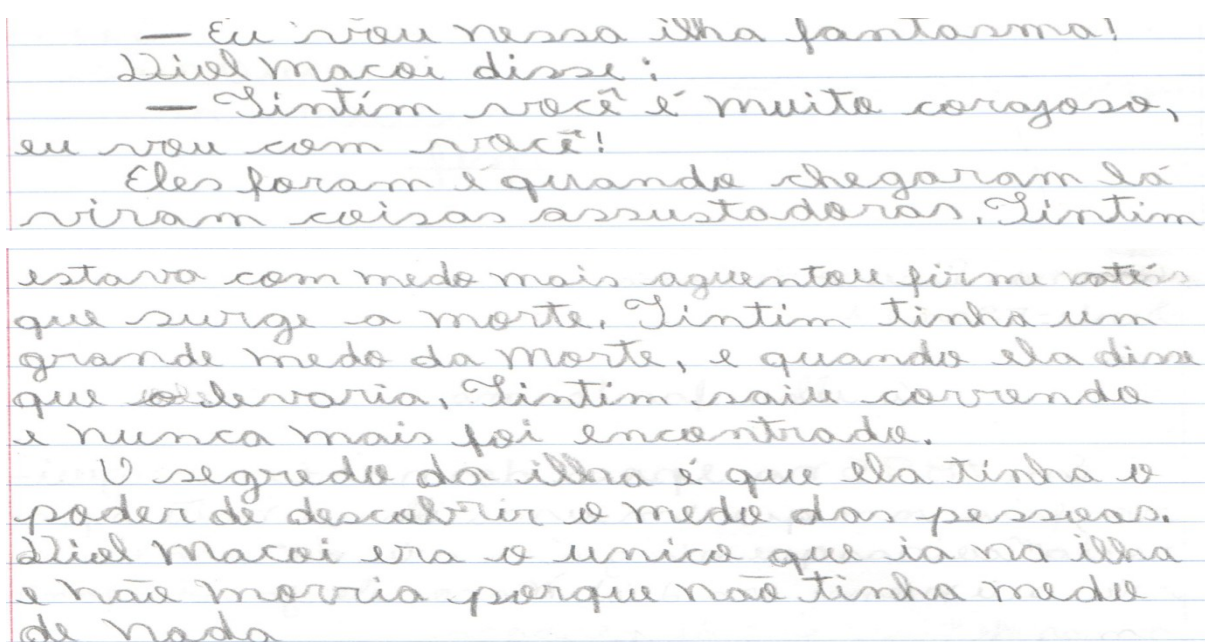 — Eu vou nessa ilha fantasma!
Diol Macoi disse:
— Tintim você é muito corajoso,
eu vou com você!
Eles foram é quando chegaram lá
viram coisas assustadoras. Tintim
estava com medo mais aguentou firme até
que surge a morte. Tintim tinha um
grande medo da morte, e quando ela disse
que o levaria, Tintim saiu correndo
e nunca mais foi encontrado.
O segredo da ilha é que ela tinha o
poder de descobrir o medo das pessoas.
Diol Macoi era o unico que ia na ilha
e não morria porque não tinha medo
de nada